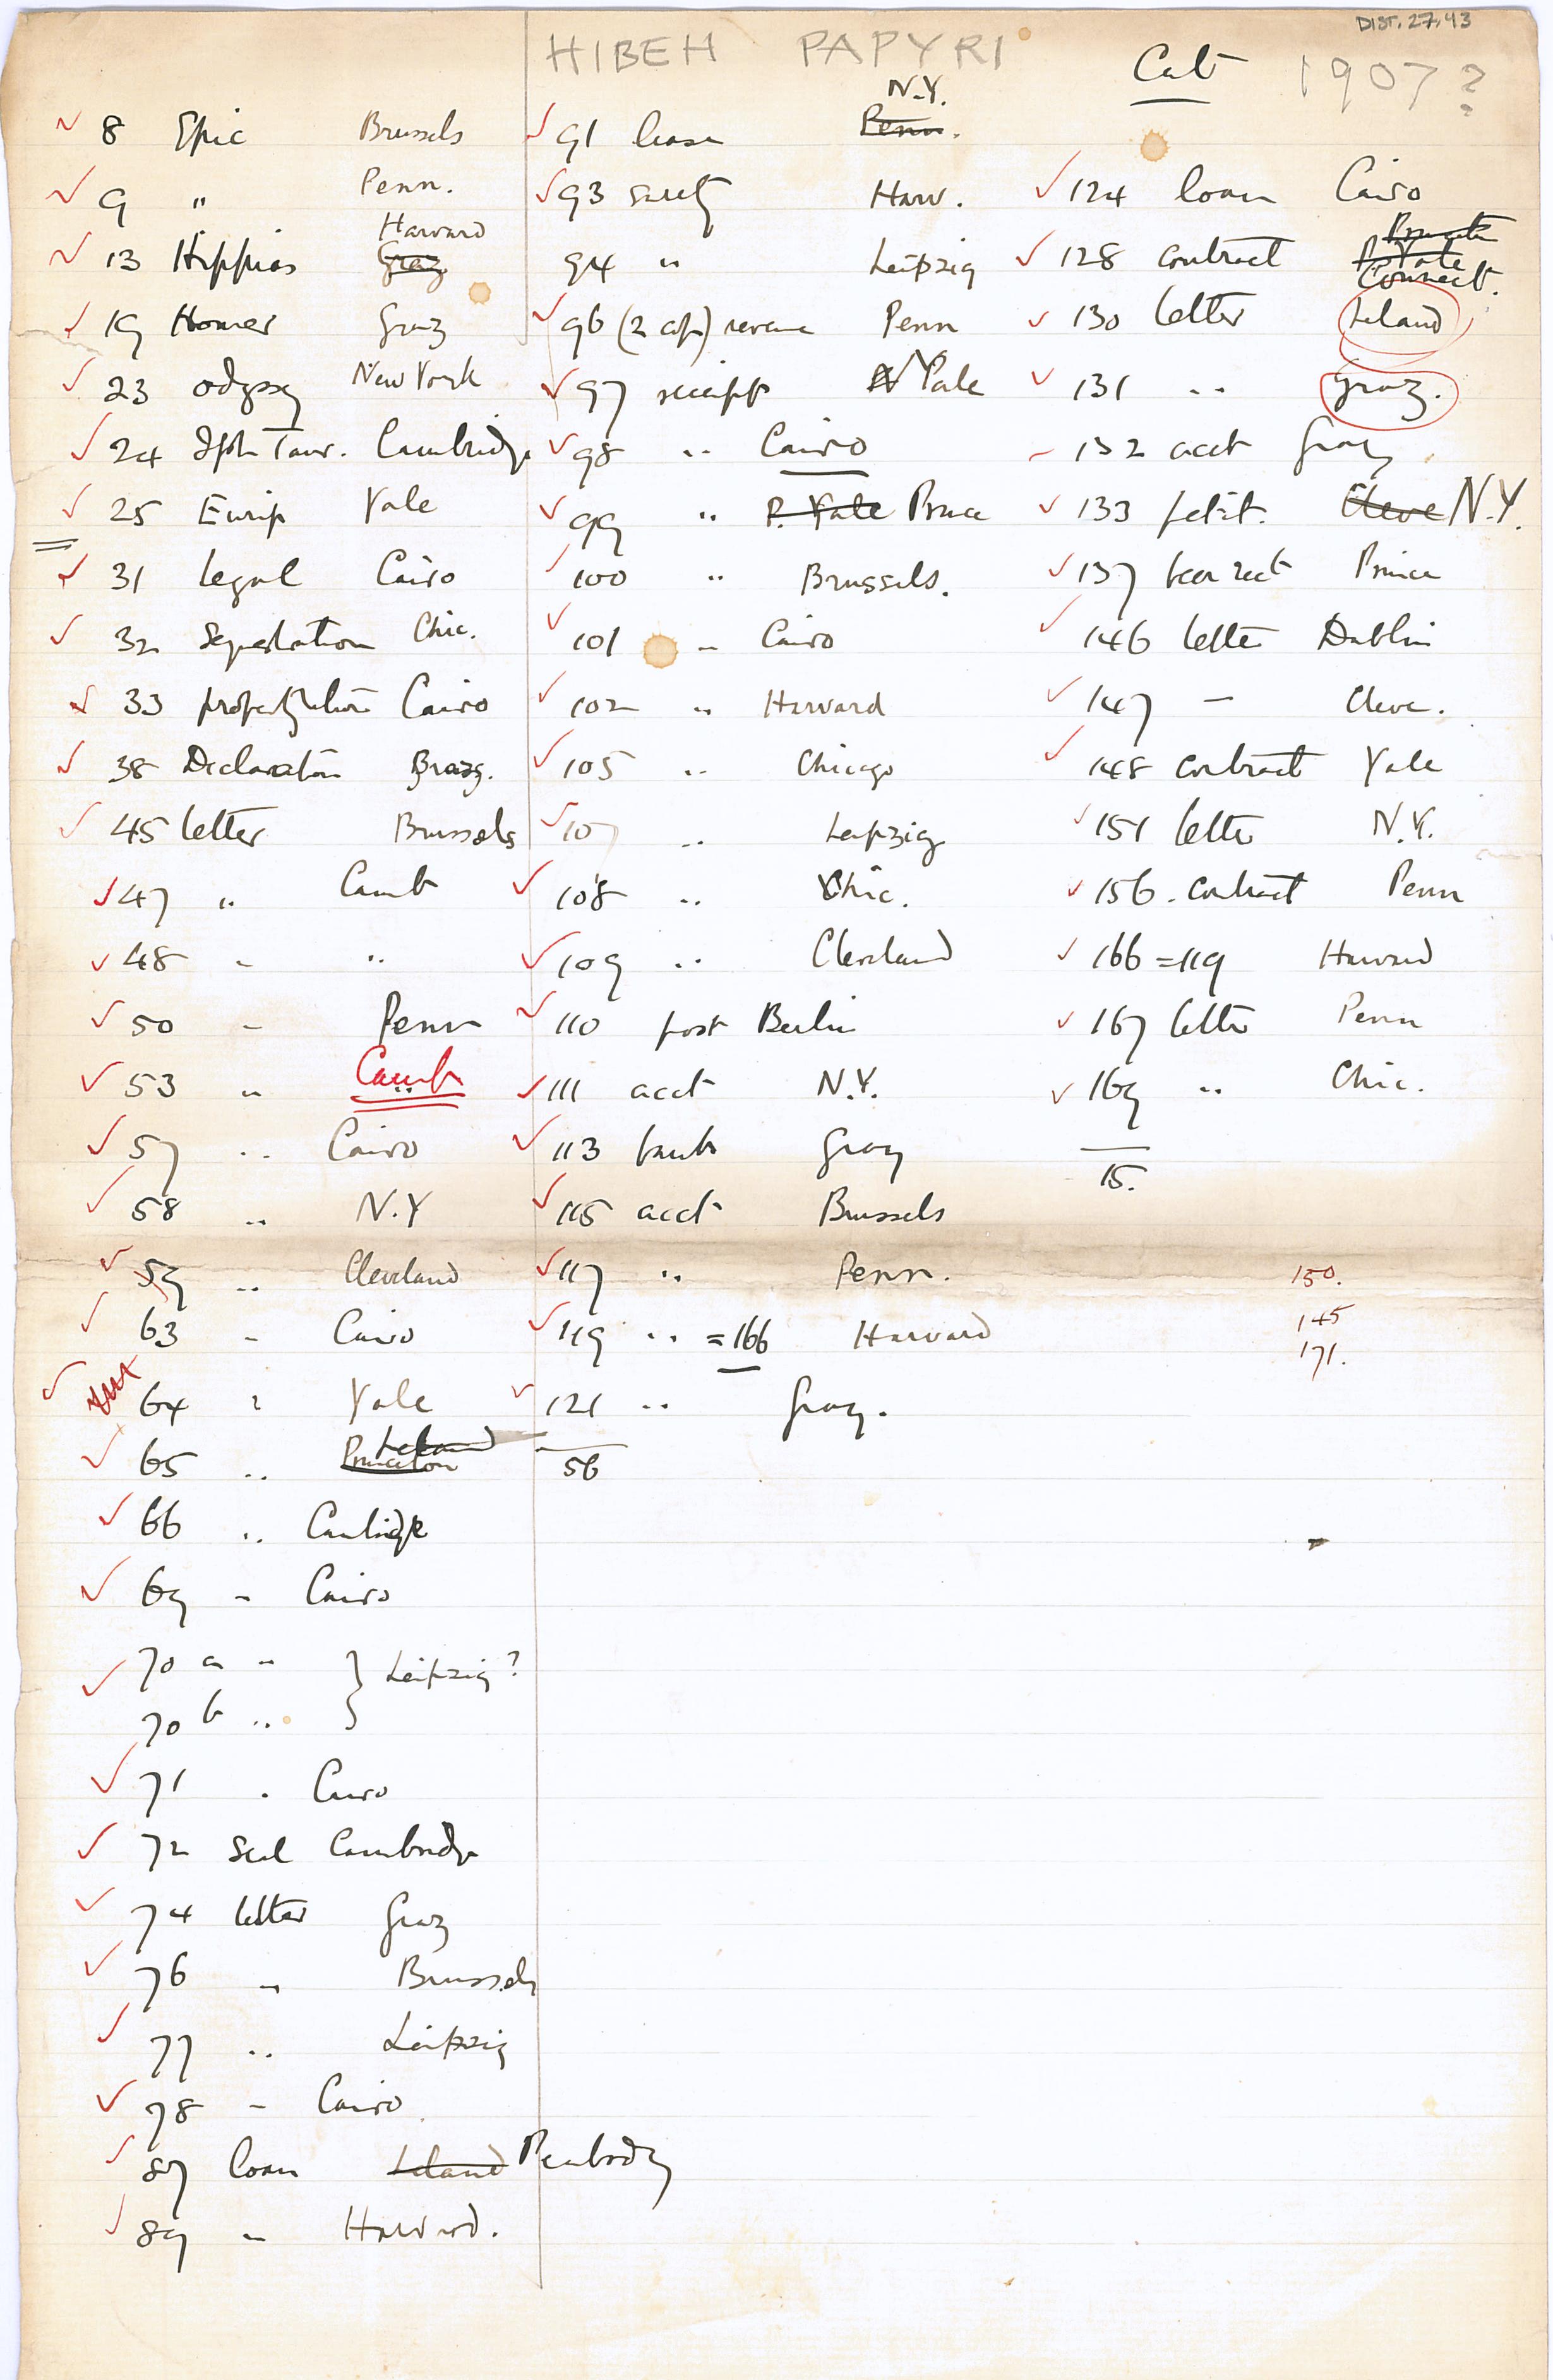 DIST. 27.43
HIBEH PAPYRI
Cat 1907?
8 Epic Brussels
9 " Penn.
Harvard
13 Hippias Graz
19 Homer Graz
23 Odyssey New York
24 Iph Taur. Cambridge
25 Eurip Yale
31 legal Cairo
32 Sequestration Chic.
33 Cairo
38 Declaration
45 letter Brussels
47 " Camb
48 " "
50 " Penn
53 " Camb
57 " Cairo
58 " N.Y
59 " Cleveland
63 " Cairo
64 " Yale
Leland
65 " Princeton
66 " Cambridge
69 " Cairo
70 a " } Leipzig?
70 b " }
71 " Cairo
72 Cambridge
74 letter Graz
76 " Brussels
77 " Leipzig
78 " Cairo
87 loan Leland Peabody
89 " Harvard.
N.Y.
91 lease Penn.
93 surety Harv.
94 " Leipzig
96 (2 cop) revenue Penn
97 receipt Yale
98 " Cairo
99 " P. Yale Prince
100 " Brussels.
101 " Cairo
102 " Harvard
105 " Chicago
107 " Leipzig
108 " Chic.
109 " Cleveland
110 post Berlin
111 acct N.Y.
113 bank Graz
115 acct Brussels
117 " Penn.
119 " =166 Harvard
121 " Graz.
56
124 loan Cairo
128 contract Yale
Connect.
130 letter Leland
131 " Graz.
132 acct Graz
133 petit. Cleve N.Y.
137 Prince
146 letter Dublin
147 " Cleve.
148 contract Yale
151 letter N.Y.
156 contract Penn
166 = 119 Harvard
167 letter Penn
169 " Chic.
15.
150.
145
171.